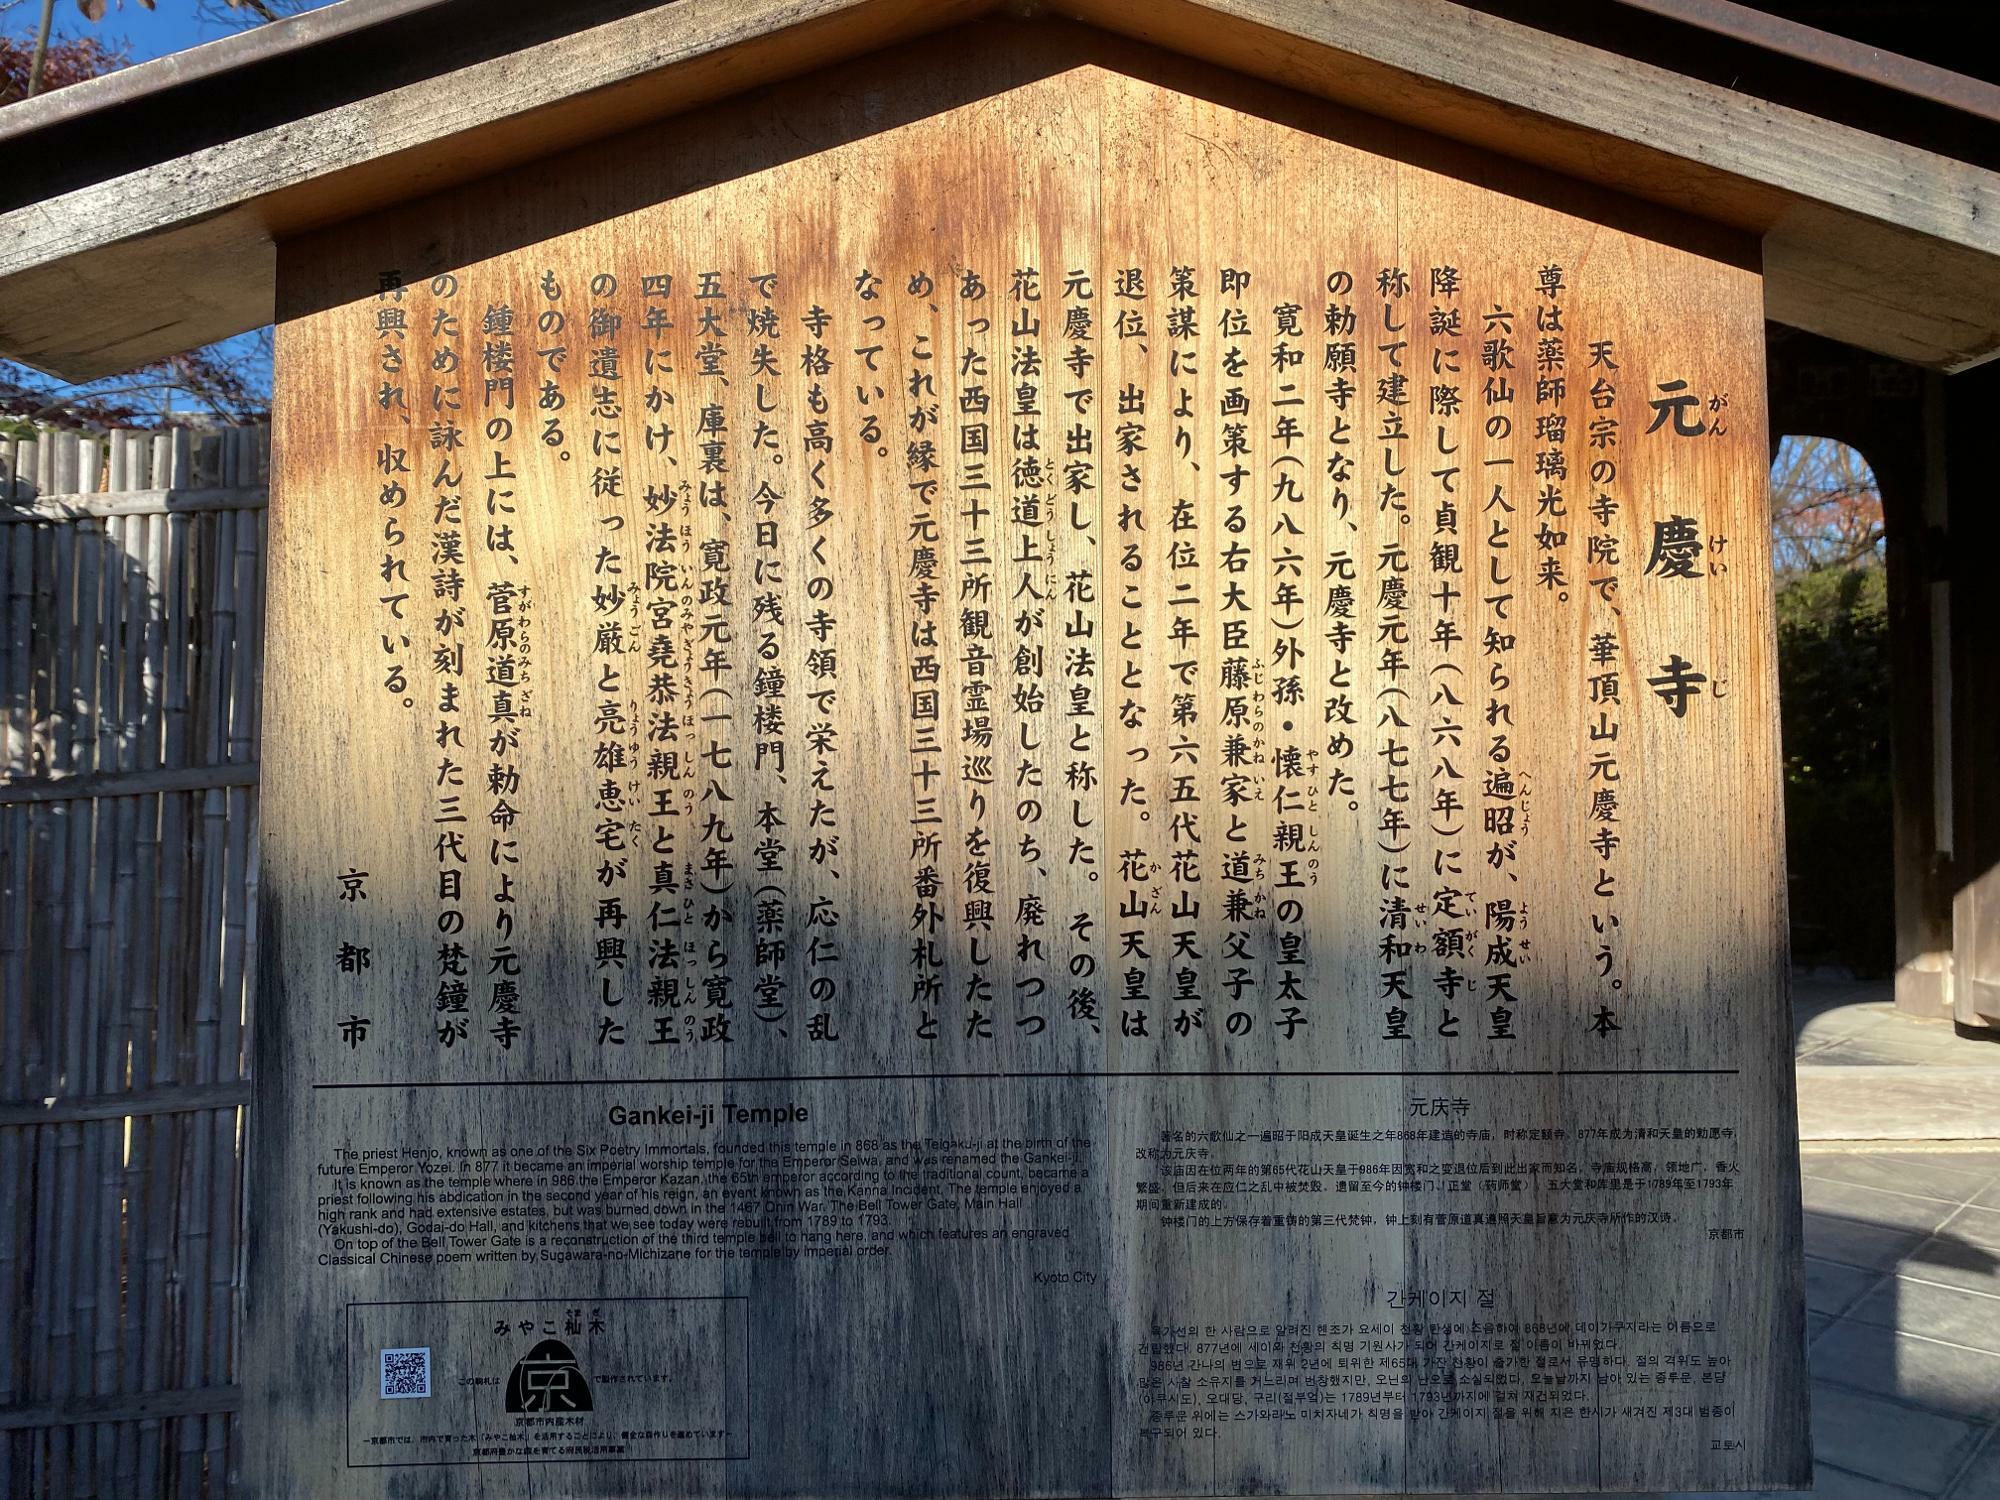 元慶寺
がんけいじ
天台宗の寺院で、華頂山元慶寺という。本
尊は薬師瑠璃光如来。
六歌仙の一人として知られる遍昭が、陽成天皇
降誕に際して貞観十年(八六八年)に定額寺と
称して建立した。元慶元年(八七七年)に清和天皇
の勅願寺となり、元慶寺と改めた。
寛和二年(九八六年)外孫・懐仁親王の皇太子
即位を画策する右大臣藤原兼家と道兼父子の
策謀により、在位二年で第六五代花山天皇が
退位、出家されることとなった。花山天皇は
元慶寺で出家し、花山法皇と称した。その後、
花山法皇は徳道上人が創始したのち、廃れつつ
あった西国三十三所観音霊場巡りを復興したた
め、これが縁で元慶寺は西国三十三所番外札所と
なっている。
寺格も高く多くの寺領で栄えたが、応仁の乱
で焼失した。今日に残る鐘楼門、本堂(薬師堂)、
五大堂、庫裏は、寛政元年(一七八九年)から寛政
四年にかけ、妙法院宮堯恭法親王と真仁法親王
の御遺志に従った妙厳と亮雄恵宅が再興した
ものである。
鍾楼門の上には、菅原道真が勅命により元慶寺
のために詠んだ漢詩が刻まれた三代目の梵鐘が
再興され、収められている。
京都市
Gankei-ji Temple
The priest Henjo, known as one of the Six Poetry Immortals, founded this temple in 868 as the Teigaku-ji at the birth of the
future Emperor Yozei. In 877 it became an imperial worship temple for the Emperor Seiwa, and was renamed the Gankei-ji.
It is known as the temple where in 986 the Emperor Kazan, the 65th emperor according to the traditional count, became a
priest following his abdication in the second year of his reign, an event known as the Kanna Incident. The temple enjoyed a
high rank and had extensive estates, but was burned down in the 1467 Onin War. The Bell Tower Gate, Main Hall
(Yakushi-do), Godai-do Hall, and kitchens that we see today were rebuilt from 1789 to 1793.
On top of the Bell Tower Gate is a reconstruction of the third temple bell to hang here, and which features an engraved
Classical Chinese poem written by Sugawara-no-Michizane for the temple by Imperial order.
Kyoto City
元庆寺
著名的六歌仙之一遍昭于阳成天皇诞生之年868年建造的寺庙，时称定额寺。877年成为清和天皇的勅愿寺，
改称为元庆寺。
该庙因在位两年的第65代花山天皇于986年因宽和之变退位后到此出家而知名。寺庙规格高，领地广，香火
繁盛，但后来在应仁之乱中被焚毁。遗留至今的钟楼门、正堂（药师堂）、五大堂和库里是于1789年至1793年
期间重新建成的。
钟楼门的上方保存着重铸的第三代梵钟，钟上刻有菅原道真遵照天皇旨意为元庆寺所作的汉诗。
京都市
간케이지 절
육가선의 한 사람으로 알려진 헨조가 요세이 천황 탄생에 즈음하여 868년에 데이가쿠지라는 이름으로
건립했다. 877년에 세이와 천황의 칙명 기원사가 되어 간케이지로 절 이름이 바뀌었다.
986년 간나의 변으로 재위 2년에 퇴위한 제65대 가잔 천황이 출가한 절로서 유명하다. 절의 격위도 높아
많은 사찰 소유지를 거느리며 번창했지만, 오닌의 난으로 소실되었다. 오늘날까지 남아 있는 종루문, 본당
(야쿠시도), 오대당, 구리(절부엌)는 1789년부터 1793년까지에 걸쳐 재건되었다.
종루문 위에는 스가와라노 미치자네가 칙명을 받아 간케이지 절을 위해 지은 한시가 새겨진 제3대 범종이
복구되어 있다.
교토시
みやこ杣木
この駒札は 京 で製作されています。
京都市内産木材
ー京都市では、市内で育った木「みやこ杣木」を活用することにより、健全な森作りを進めていますー
京都府豊かな森を育てる府民税活用事業